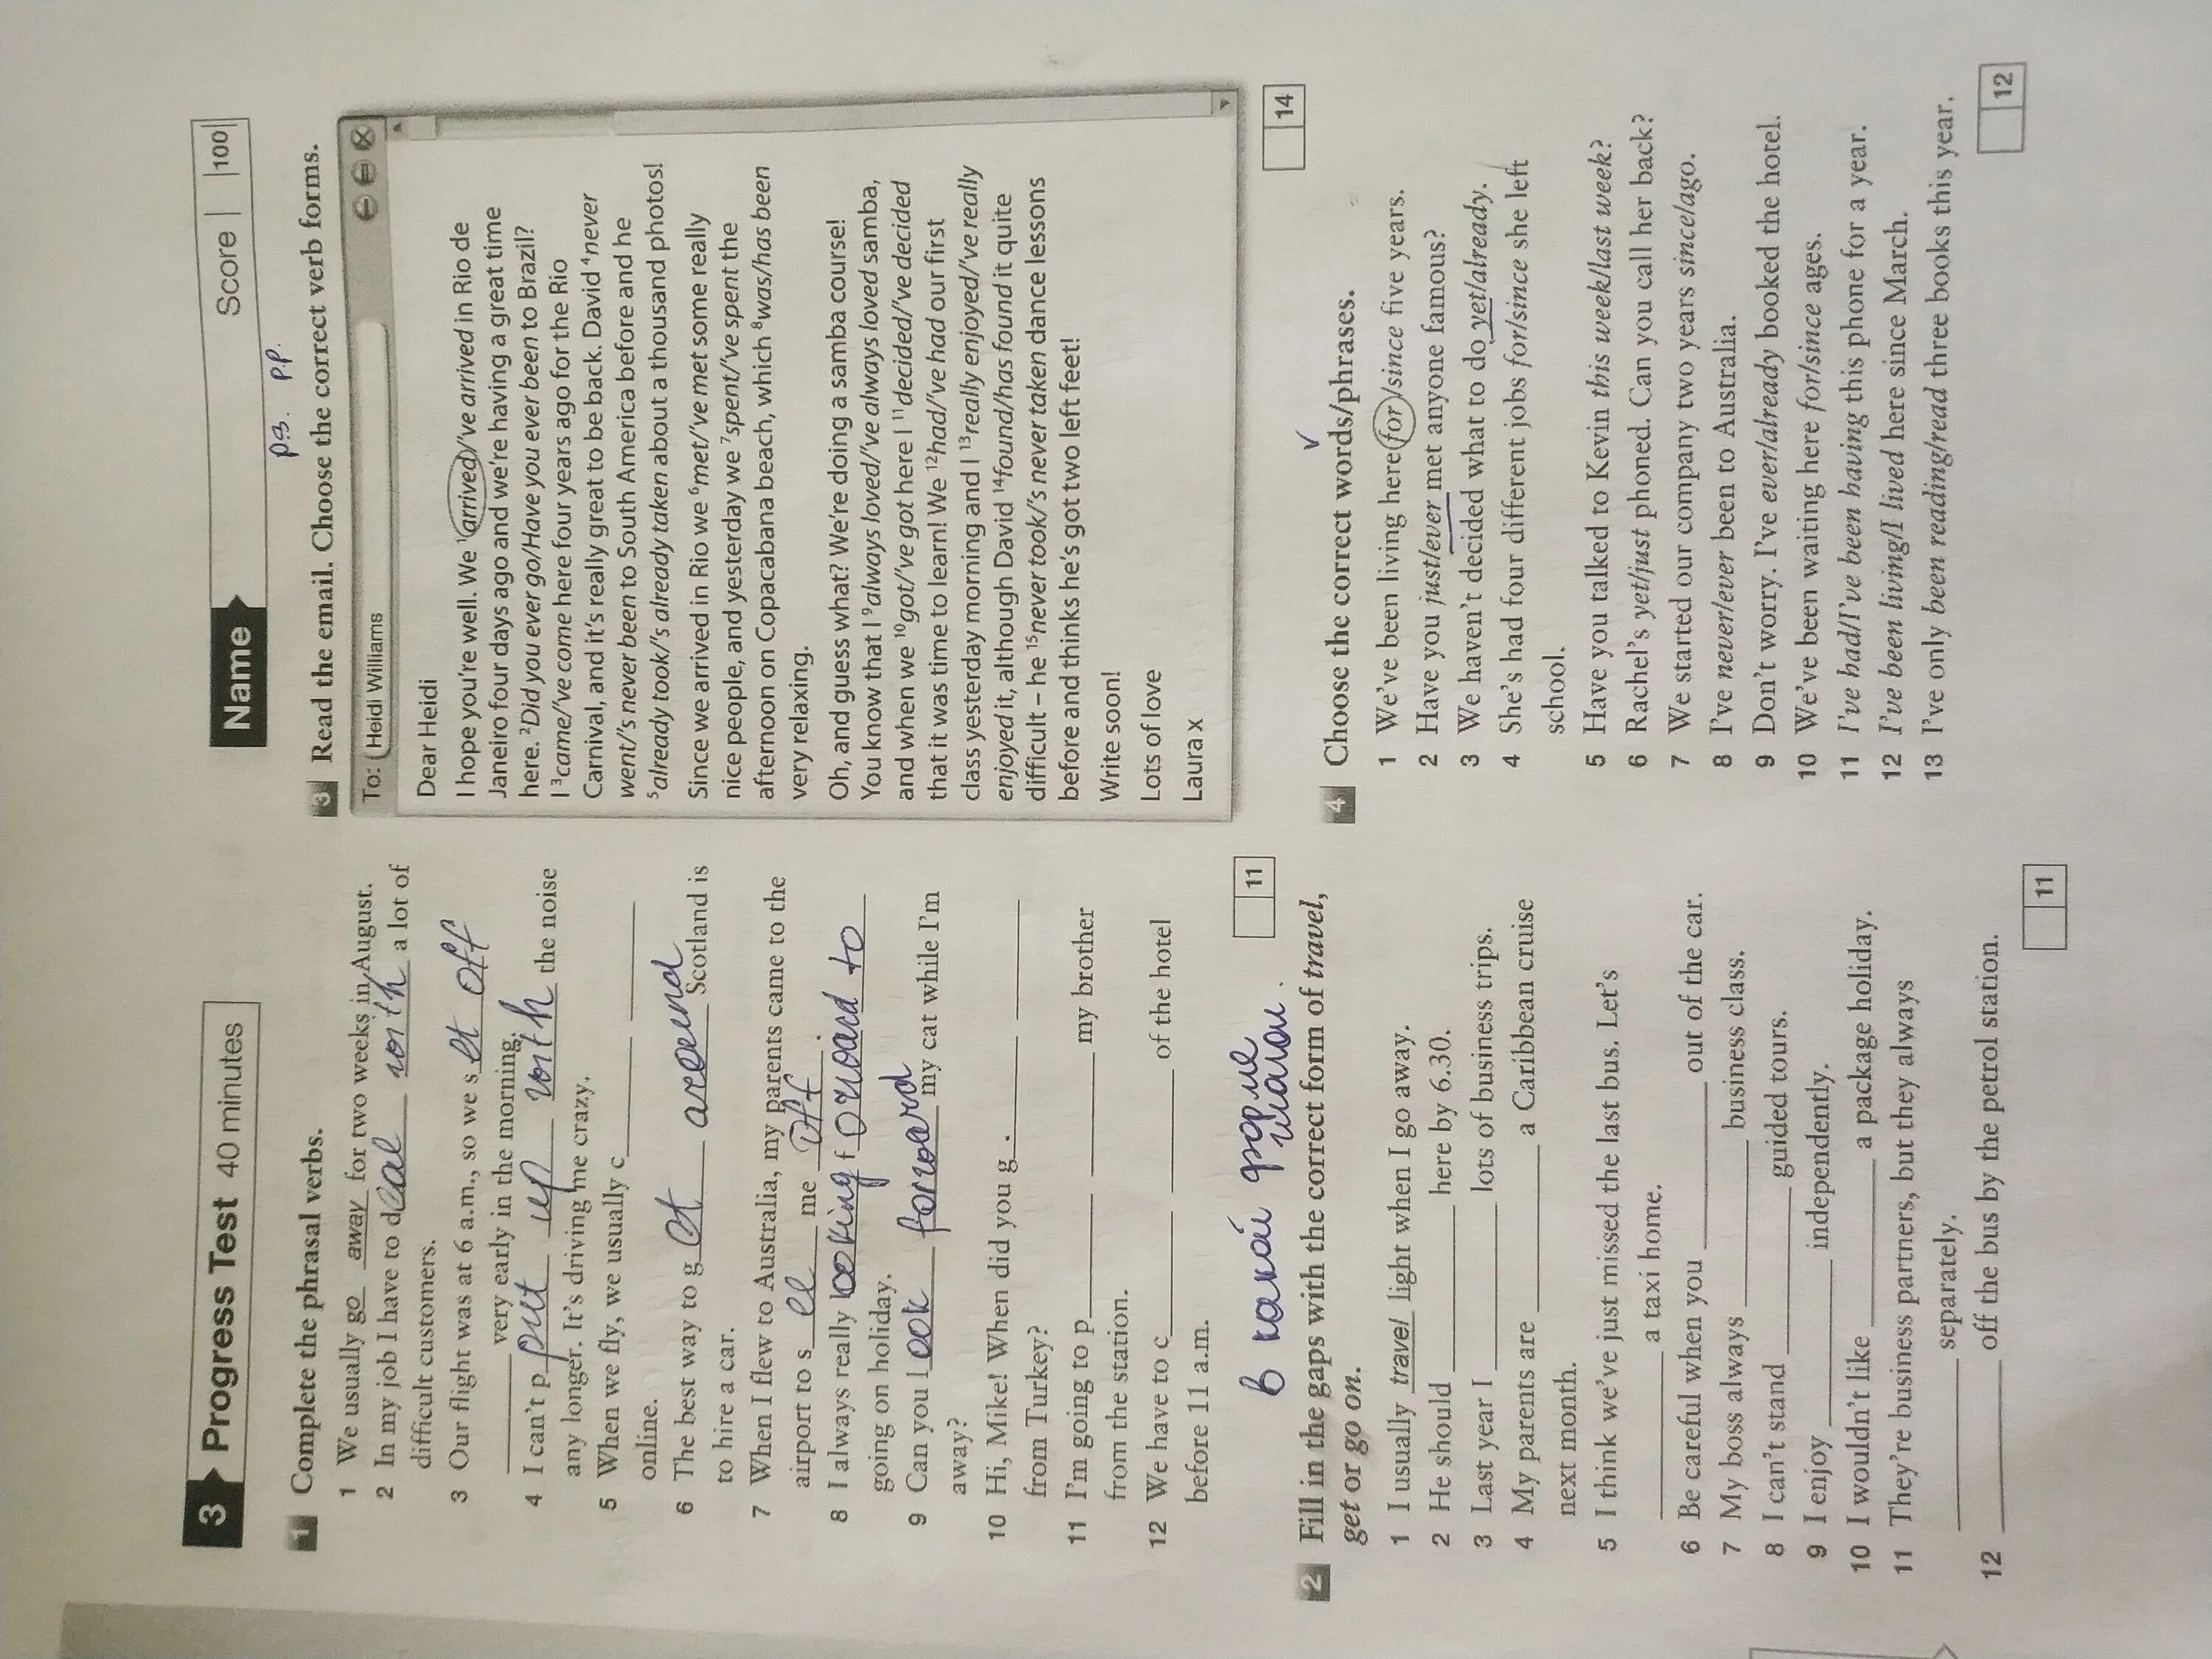 3 Progress Test 40 minutes
Name Score 100
1 Complete the phrasal verbs.
1 We usually go away for two weeks in August.
2 In my job I have to deal with a lot of
difficult customers.
3 Our flight was at 6 a.m., so we set off
very early in the morning.
4 I can't p put up with the noise
any longer. It's driving me crazy.
5 When we fly, we usually c
online.
6 The best way to get around Scotland is
to hire a car.
7 When I flew to Australia, my parents came to the
airport to see me off.
8 I always really looking forward to
going on holiday.
9 Can you look forward my cat while I'm
away?
10 Hi, Mike! When did you g
from Turkey?
11 I'm going to p my brother
from the station.
12 We have to c of the hotel
before 11 a.m.
11
в какой форме
2 Fill in the gaps with the correct form of travel,
get or go on.
1 I usually travel light when I go away.
2 He should here by 6.30.
3 Last year I lots of business trips.
4 My parents are a Caribbean cruise
next month.
5 I think we've just missed the last bus. Let's
a taxi home.
6 Be careful when you out of the car.
7 My boss always business class.
8 I can't stand guided tours.
9 I enjoy independently.
10 I wouldn't like a package holiday.
11 They're business partners, but they always
separately.
12 off the bus by the petrol station.
11
P.S. P.P.
3 Read the email. Choose the correct verb forms.
To: Heidi Williams
Dear Heidi
I hope you're well. We ¹arrived/'ve arrived in Rio de
Janeiro four days ago and we're having a great time
here. ²Did you ever go/Have you ever been to Brazil?
I ³came/'ve come here four years ago for the Rio
Carnival, and it's really great to be back. David ⁴never
went/'s never been to South America before and he
⁵already took/'s already taken about a thousand photos!
Since we arrived in Rio we ⁶met/'ve met some really
nice people, and yesterday we ⁷spent/'ve spent the
afternoon on Copacabana beach, which ⁸was/has been
very relaxing.
Oh, and guess what? We're doing a samba course!
You know that I ⁹always loved/'ve always loved samba,
and when we ¹⁰got/'ve got here I ¹¹decided/'ve decided
that it was time to learn! We ¹²had/'ve had our first
class yesterday morning and I ¹³really enjoyed/'ve really
enjoyed it, although David ¹⁴found/has found it quite
difficult – he ¹⁵never took/'s never taken dance lessons
before and thinks he's got two left feet!
Write soon!
Lots of love
Laura x
14
4 Choose the correct words/phrases.
1 We've been living here for/since five years.
2 Have you just/ever met anyone famous?
3 We haven't decided what to do yet/already.
4 She's had four different jobs for/since she left
school.
5 Have you talked to Kevin this week/last week?
6 Rachel's yet/just phoned. Can you call her back?
7 We started our company two years since/ago.
8 I've never/ever been to Australia.
9 Don't worry. I've ever/already booked the hotel.
10 We've been waiting here for/since ages.
11 I've had/I've been having this phone for a year.
12 I've been living/I lived here since March.
13 I've only been reading/read three books this year.
12